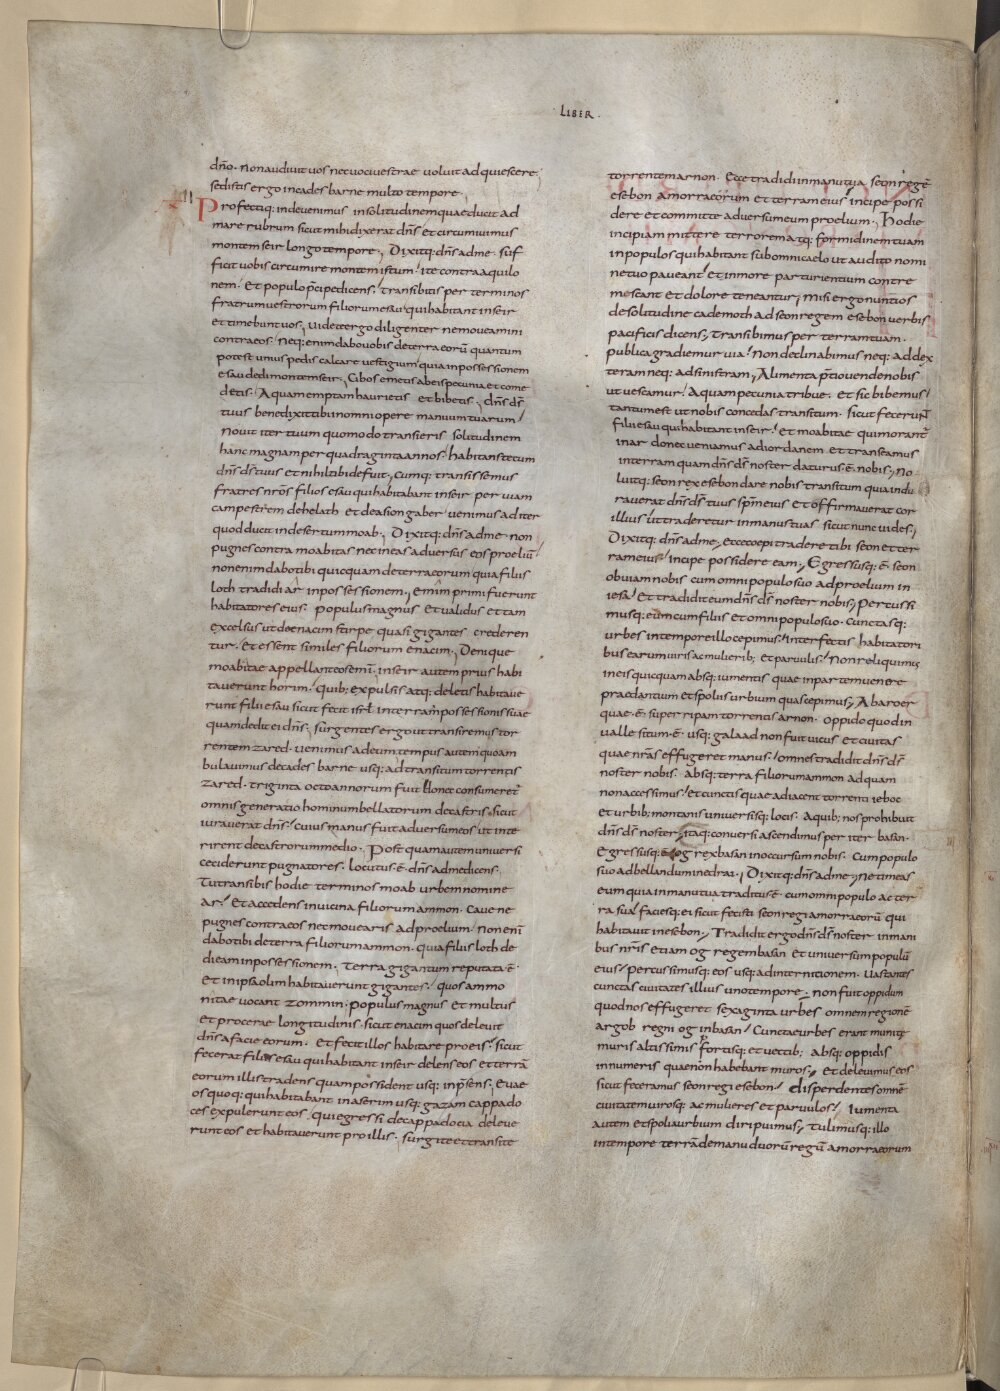 LIBER
dño. Non audivit vos nec voci vestrae voluit adquiescere;
sedistis ergo in cades barne multo tempore.
II Profectiq: inde venimus in solitudinem quae ducit ad
mare rubrum sicut mihi dixerat dñs et circumivimus
montem seir longo tempore; Dixitq: dñs ad me. suf
ficit vobis circumire montem istum. ite contra aquilo
nem. Et populo p̃cipe dicens; Transibitis per terminos
fratrum vestrorum filiorum esau qui habitant in seir
et timebunt vos; Videte ergo diligenter ne moveamini
contra eos. Neq: enim dabo vobis de terra eorũ quantum
potest unius pedis calcare vestigium quia in possessionem
esau dedi montem seir; Cibos emetis ab eis pecunia et come
detis. Aquam emptam haurietis et bibetis; dñs ds̃
tuus benedixit tibi in omni opere manuum tuarum
Novit iter tuum quomodo transieris solitudinem
hanc magnam per quadraginta annos. habitans tecum
dñs ds̃ tuus et nihil tibi defuit; Cumq: transissemus
fratres nrõs filios esau qui habitabant in seir per viam
campestrem de helath et de asion gaber venimus ad iter
quod ducit in desertum moab; Dixitq: dñs ad me. non
pugnes contra moabitas nec ineas adversus eos proeliũ
non enim dabo tibi quicquam de terra eorum quia filiis
loth tradidi ar in possessionem; Emim primi fuerunt
habitatores eius. populus magnus et validus et tam
excelsus ut de enacim stirpe quasi gigantes crederen
tur. Et essent similes filiorum enacim; Denique
moabitae appellant eos emĩ. in seir autem prius habi
taverunt horim. quib; expulsis atq: deletis habitave
runt filii esau sicut fecit isr̃l in terram possessionis suae
quam dedit ei dñs; surgentes ergo ut transiremus tor
rentem zared. venimus ad eum tempus autem quo am
bulavimus de cades barne usq: ad transitum torrentis
zared. triginta octo annorum fuit donec consumeret̃
omnis generatio hominum bellatorum de castris. sicut
iuraverat dñs. cuius manus fuit adversum eos ut inte
rirent de castrorum medio. Postquam autem universi
ceciderunt pugnatores. locutus ẽ dñs ad me dicens.
Tu transibis hodie terminos moab urbem nomine
ar. Et accedens in vicina filiorum ammon. Cave ne
pugnes contra eos nec movearis ad proelium Non enĩ
dabo tibi de terra filiorum ammon. quia filiis loth de
di eam in possessionem; Terra gigantum reputata ẽ
Et in ipsa olim habitaverunt gigantes. quos ammo
nitae vocant zommin. populus magnus et multus
et procerae longitudinis. sicut enacim quos delevit
dñs a facie eorum. Et fecit illos habitare pro eis. sicut
fecerat filiis esau qui habitant in seir delens eos et terrã
eorum illis tradens quam possident usq: in p̃sens; Evae
os quoq: qui habitabant in aserim usq: gazam cappado
ces expulerunt eos. qui egressi de cappadocia deleve
runt eos et habitaverunt pro illis. surgite et transite
torrentem arnon. Ecce tradidi in manu tua seon regẽ
esebon amorraeorum et terram eius incipe possi
dere et committe adversum eum proelium. Hodie
incipiam mittere terrorem atq: formidinem tuam
in populos qui habitant sub omni caelo ut audito nomi
ne tuo paveant et in more parturientium contre
mescant et dolore teneantur; Misi ergo nuntios
de solitudine cademoth ad seon regem esebon verbis
pacificis dicens; Transibimus per terram tuam.
publica gradiemur via. Non declinabimus neq: ad dex
teram neq: ad sinistram; Alimenta p̃tio vende nobis
ut vescamur. Aquam pecunia tribue. et sic bibemus
tantum est ut nobis concedas transitum. sicut fecerun̄t
filii esau qui habitant in seir. et moabitae qui morant̃
in ar donec veniamus ad iordanem et transeamus
in terram quam dñs ds̃ noster daturus ẽ nobis; No
luitq: seon rex esebon dare nobis transitum quia indu
raverat dñs ds̃ tuus spm̃ eius et offirmaverat cor
illius ut traderetur in manus tuas sicut nunc vides;
Dixitq: dñs ad me; ecce coepi tradere tibi seon et ter
ram eius. incipe possidere eam; Egressusq: ẽ seon
obviam nobis cum omni populo suo ad proelium in
iesa. Et tradidit eum dñs ds̃ noster nobis; Percussi
musq: eum cum filiis et omni populo suo. Cunctasq:
urbes in tempore illo cepimus. Interfectis habitatori
bus earum viris ac mulierib; et parvulis. Non reliquimus
in eis quicquam absq: iumentis quae in partem venere
praedantium et spoliis urbium quas cepimus; Ab aroer
quae ẽ super ripam torrentis arnon. oppido quod in
valle situm ẽ usq: galaad non fuit vicus et civitas
quae nrãs effugeret manus. omnes tradidit dñs ds̃
noster nobis. Absq: terra filiorum ammon ad quam
non accessimus. et cunctis quae adiacent torrenti ieboc
et urbib; montanis universisq: locis. A quib; nos prohibuit
dñs ds̃ noster. itaq: conversi ascendimus per iter basan.
Egressusq: ẽ og rex basan in occursum nobis. Cum populo
suo ad bellandum in edrai; Dixitq: dñs ad me; Ne timeas
eum quia in manu tua traditus ẽ cum omni populo ac ter
ra sua. faciesq: ei sicut fecisti seon regi amorraeorũ qui
habitavit in esebon; Tradidit ergo dñs ds̃ noster in mani
bus nrĩs etiam og regem basan et universum populũ
eius. percussimusq: eos usq: ad internitionem. vastantes
cunctas civitates illius uno tempore. non fuit oppidum
quod nos effugeret sexaginta urbes omnem regionẽ
argob regni og in basan. Cunctae urbes erant munitę
muris altissimis portisq: et vectib; absq: oppidis
innumeris quae non habebant muros; et delevimus eos
sicut feceramus seon regi esebon. disperdentes omnẽ
civitatem virosq: ac mulieres et parvulos. Iumenta
autem et spolia urbium diripuimus; Tulimusq: illo
in tempore terrã de manu duorũ regũ amorraeorum